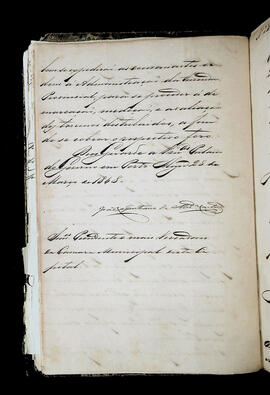 bem se expedirá as
dem á Administração da Fazenda
Provincial, para se proceder á de
marcação, medição, e avaliação
do terreno distribuido, a fim
de se cobrar o respectivo foro.
Deus Guarde a Vmces. Palacio
do Governo em Porto Alegre 25 de
Março de 1863.
Snres. Presidente e mais Vereadores
da Camara Municipal desta Ca
pital.